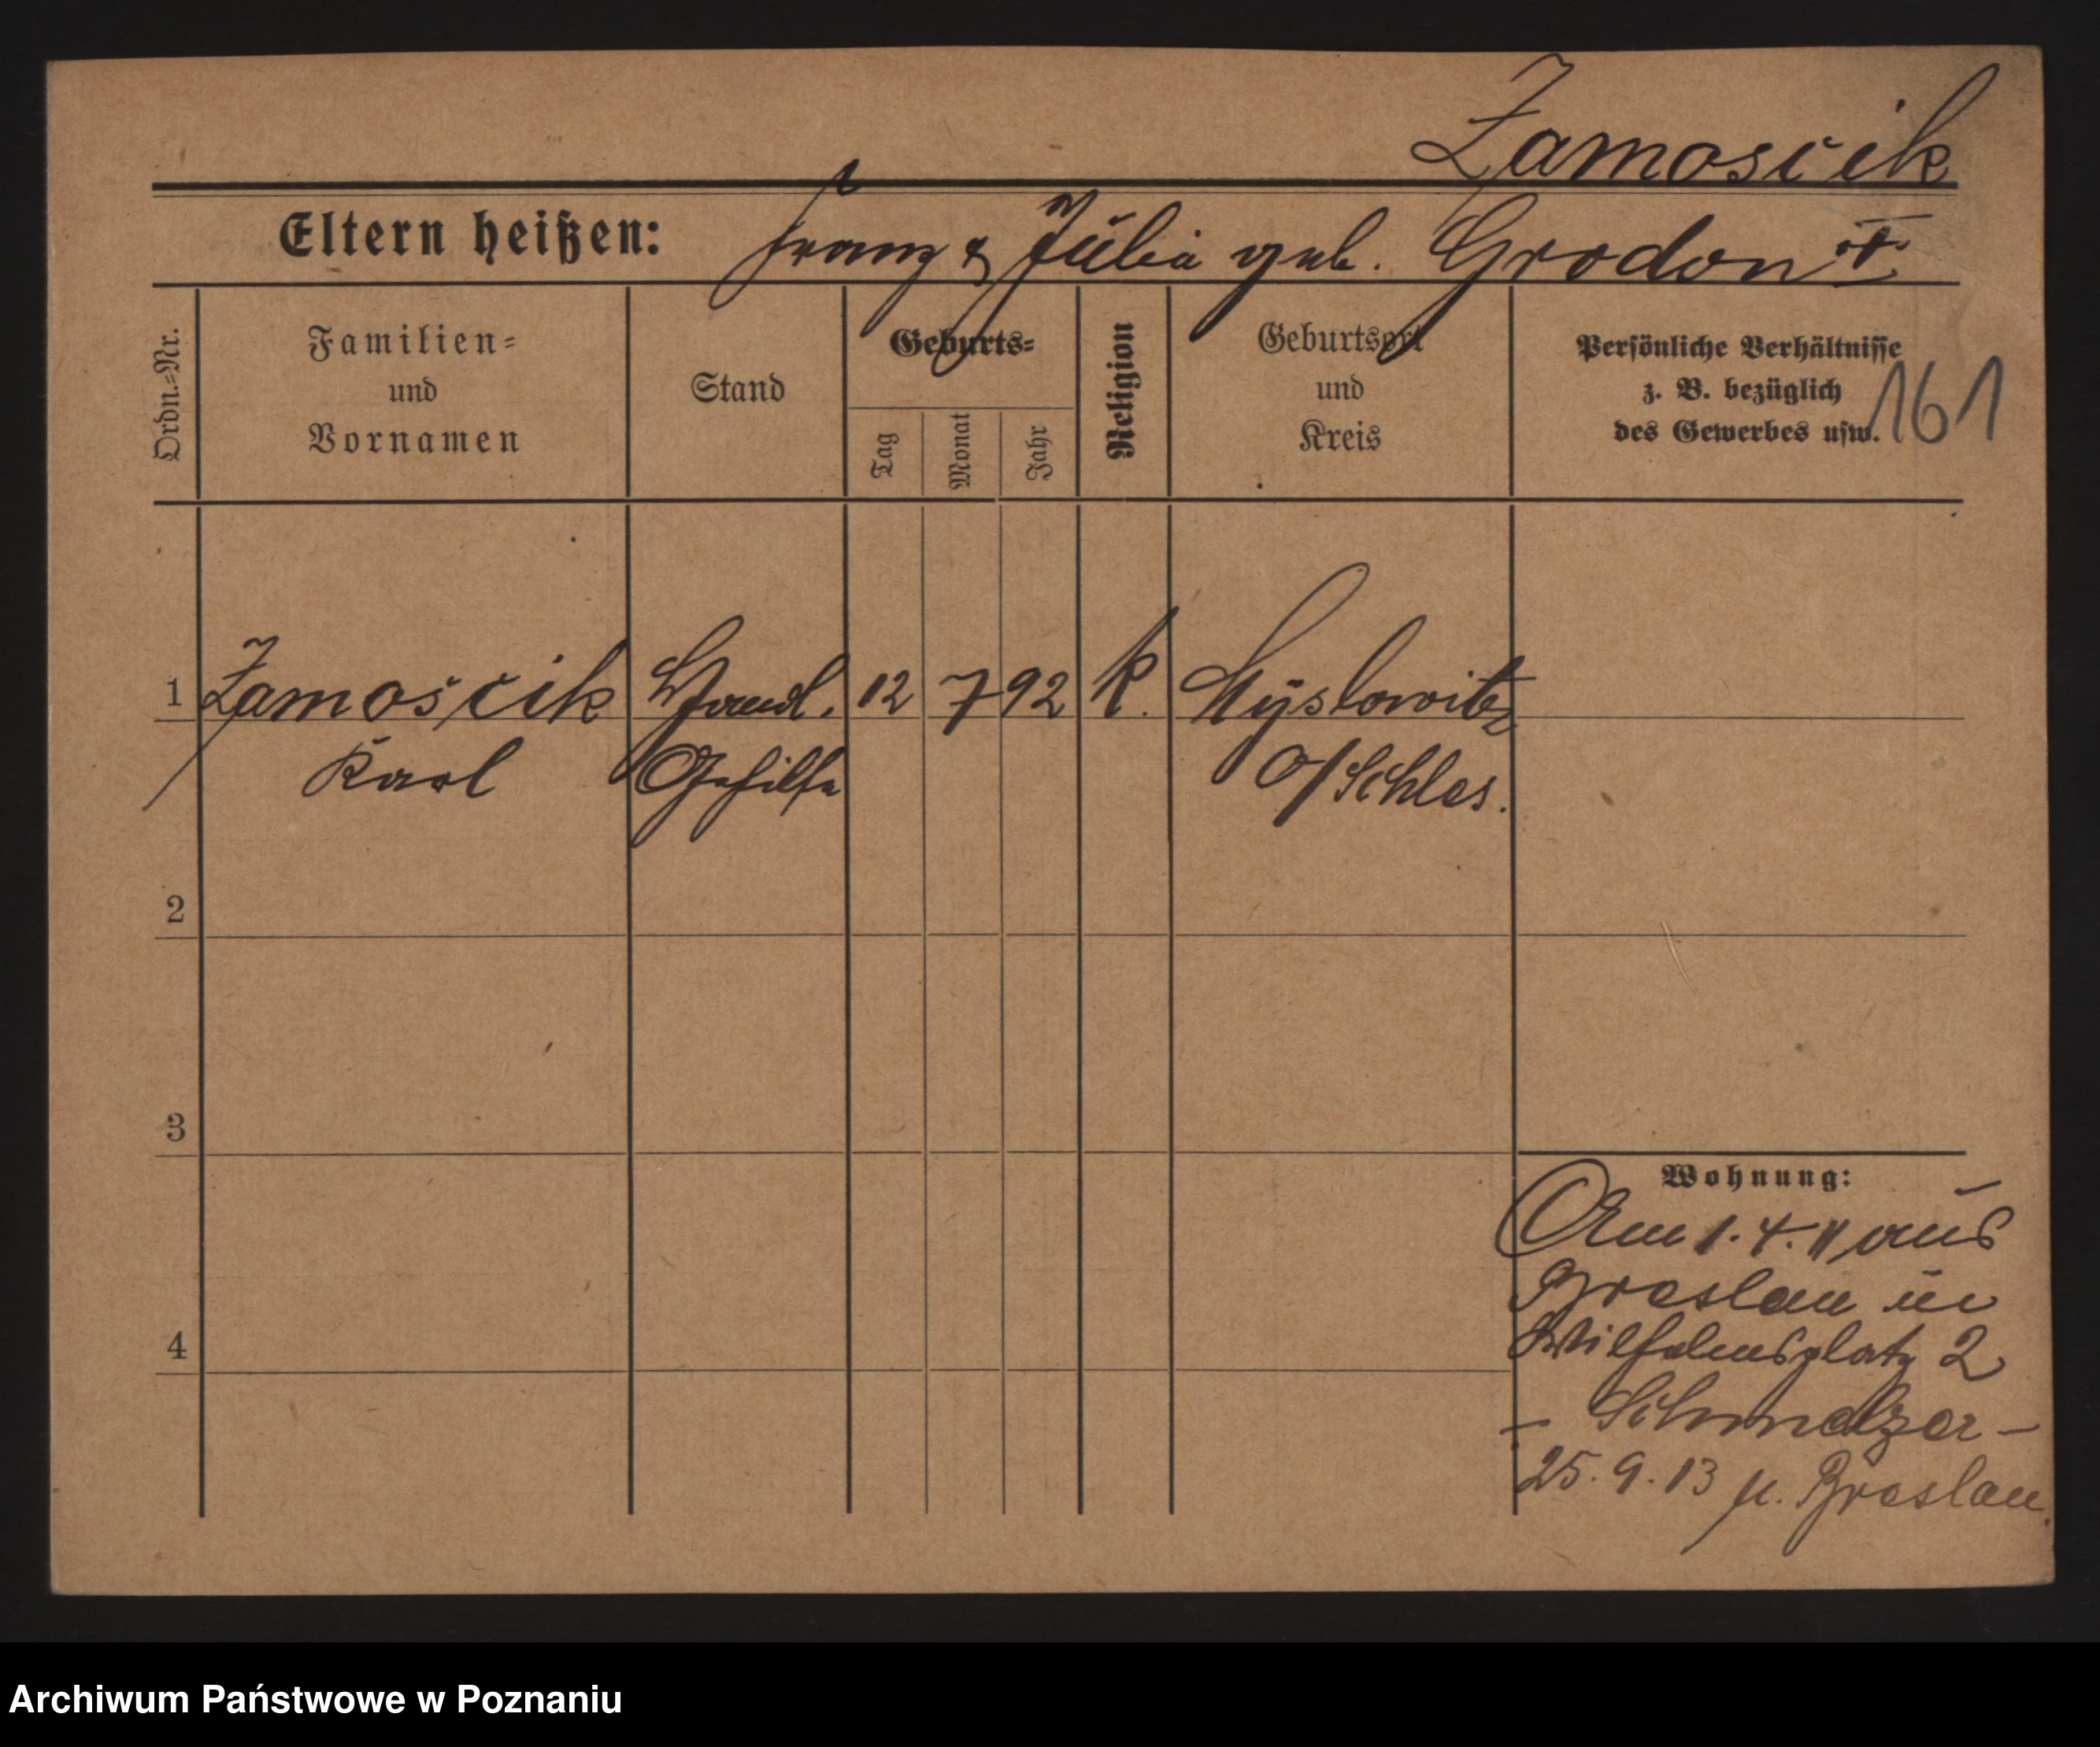 Zamoscik
Eltern heißen: Franz & Julia geb. Grodon
Ordn.=Nr.
Familien=
und
Vornamen
Stand
Geburts=
Tag
Monat
Jahr
Religion
Geburtsort
und
Kreis
Persönliche Verhältnisse
z. B. bezüglich
des Gewerbes usw.
161
1 Zamościk Handl. 12 7 92 k. Myslowitz
Karl Gehilfe O/Schles.
2
3
4
Wohnung:
Am 1.4.11 aus
Breslau in
Wilhelmsplatz 2
- Schmelzer -
25.9.13 n. Breslau
Archiwum Państwowe w Poznaniu